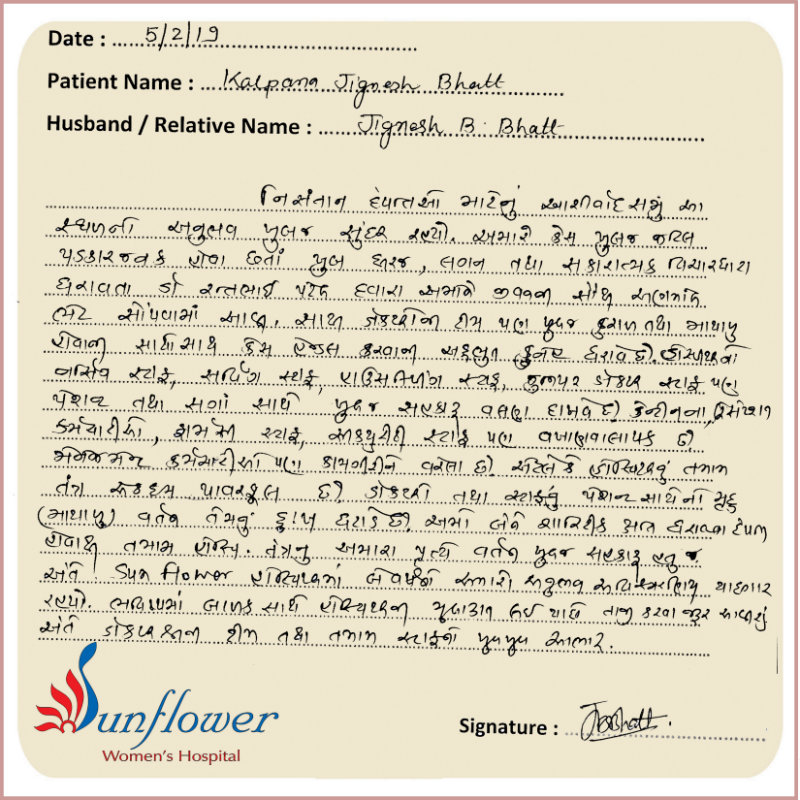 Date : 5/2/19
Patient Name : Kalpana Jignesh Bhatt
Husband / Relative Name : Jignesh B. Bhatt
નિસંતાન દંપતીઓ માટેનું આશીર્વાદ સમું આ
સ્થળનો અનુભવ ખુબજ સુંદર રહ્યો. અમારો કેસ ખુબજ જટિલ
પડકારજનક હોવા છતાં ખુબ ધીરજ, લગન તથા સકારાત્મક વિચારધારા
ધરાવતા ડૉ પટેલ દ્વારા અમોને જીવનની સૌથી
ભેટ સોંપવામાં આવી. સાથે ડોક્ટરોની ટીમ પણ ખુબજ કુશળ તથા માયાળુ
હોવાની સાથોસાથ કેસ હેન્ડલ કરવાની અદ્દભુત કુનેહ ધરાવે છે. હોસ્પિટલનો
નર્સિંગ સ્ટાફ, હાઉસકીપીંગ સ્ટાફ, ડોક્ટર સ્ટાફ પણ
પેશન્ટ તથા સગાં સાથે ખુબજ વલણ દાખવે છે. કેન્ટીનના,
કર્મચારીઓ, ફાર્મસી સ્ટાફ, સીક્યુરીટી સ્ટાફ પણ વખાણવાલાયક છે.
મેનેજમેન્ટ કર્મચારીઓ પણ કામગીરીને વરેલા છે. એટલે કે હોસ્પિટલનું તમામ
તંત્ર એકદમ પાવરફુલ છે. ડોક્ટરો તથા સ્ટાફનું પેશન્ટ સાથેનો મૃદુ
(માયાળુ) વર્તન તેમનું દુઃખ ઘટાડે છે. અમો બંને શારિરીક
હોવાથી તમામ હોસ્પિ. તંત્રનું અમારા પ્રત્યે વર્તન ખુબજ હતુ જ.
અંતે Sun flower હોસ્પિટલમાં અમારો અનુભવ અવિસ્મરણીય યાદગાર
રહ્યો. ભવિષ્યમાં બાળક સાથે હોસ્પિટલની મુલાકાત લઈ તાજી કરવા જરૂર આવીશું
અંતે ડોક્ટરશ્રીની ટીમ તથા તમામ સ્ટાફનો ખુબખુબ આભાર.
Sunflower
Women's Hospital
Signature : JBBhatt.